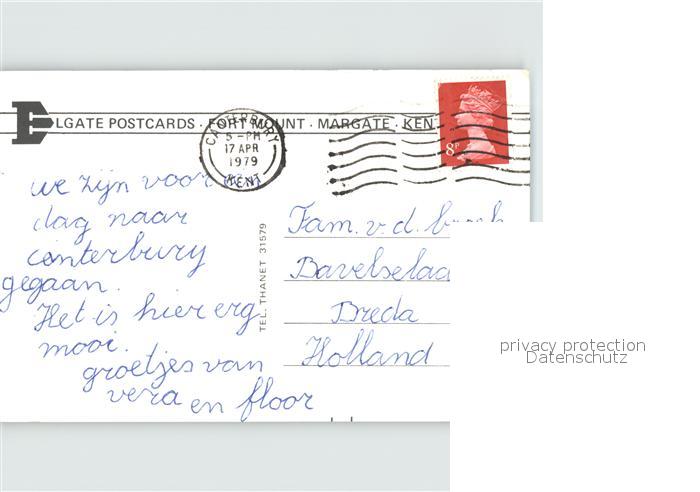 ELGATE POSTCARDS · FORT MOUNT · MARGATE · KENT
CANTERBURY
5-PM
17 APR
1979
KENT
8P
we zijn voor
dag naar
canterbury
gegaan.
Het is hier erg
mooi.
groetjes van
vera en floor
TEL. THANET 31579
Fam. v. d.
Bavelselaa
Breda
Holland
privacy protection
Datenschutz